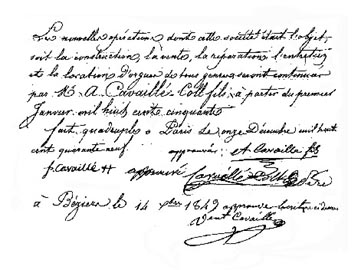 Les nouvelles opérations dont cette société était l'objet,
soit la construction, la vente, la réparation, l'entretien
et la location d'orgues de tous genres seront continuées
par Mr A. Cavaillé-Coll fils à partir du premier
Janvier mil huit cent cinquante
fait quadruple à Paris le onze Décembre mil huit
cent quarante neuf. approuvé: A Cavaillé fils
p. Cavaillé approuvé Cavaillé Coll Père
à Béziers le 14 Xbre 1849 approuvé l'écriture ci dessus
Cavaillé